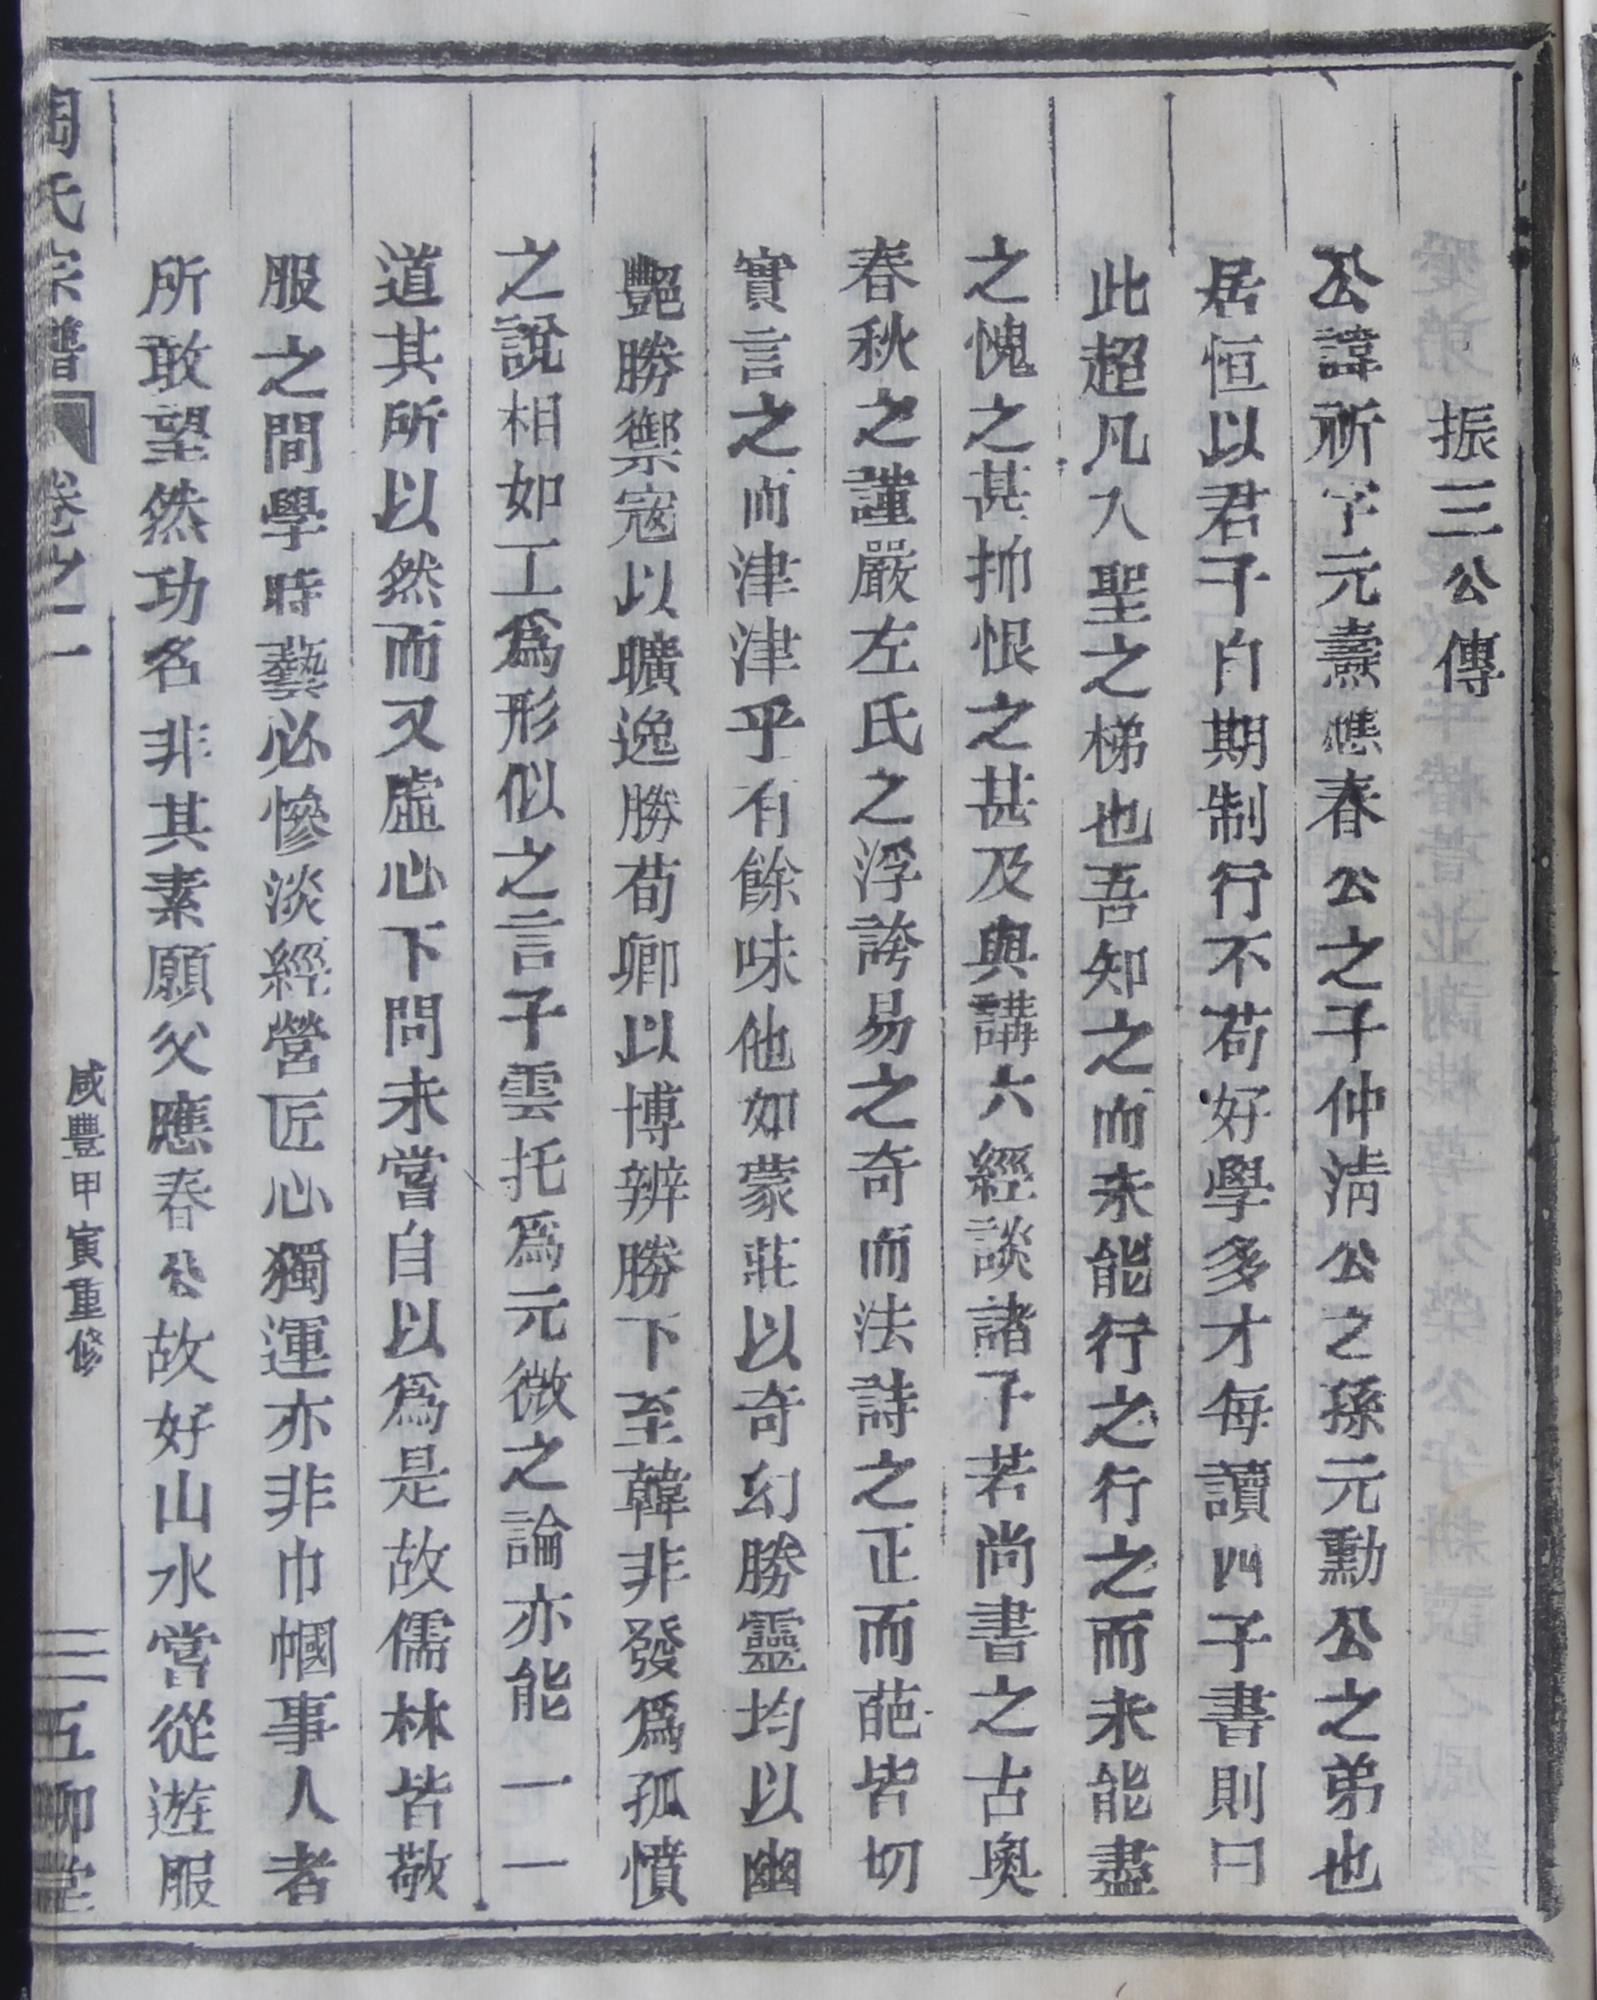 振三公傳
公諱祈字元燾應春公之子仲淸公之孫元勳公之弟也
居恒以君子自期制行不苟好學多才每讀四子書則曰
此超凡入聖之梯也吾知之而未能行之行之而未能盡
之愧之甚抑恨之甚及與講六經談諸子若尚書之古奧
春秋之謹嚴左氏之浮誇易之奇而法詩之正而葩皆切
實言之而津津乎有餘味他如蒙莊以奇幻勝靈均以幽
艷勝禦寇以曠逸勝荀卿以博辨勝下至韓非發爲孤憤
之說相如工爲形似之言子雲托爲元微之論亦能一一
道其所以然而又虛心下問未嘗自以爲是故儒林皆敬
服之間學時藝必慘淡經營匠心獨運亦非巾幗事人者
所敢望然功名非其素願父應春公故好山水嘗從遊服
陶氏宗譜 卷之一 咸豐甲寅重修 三 五柳堂